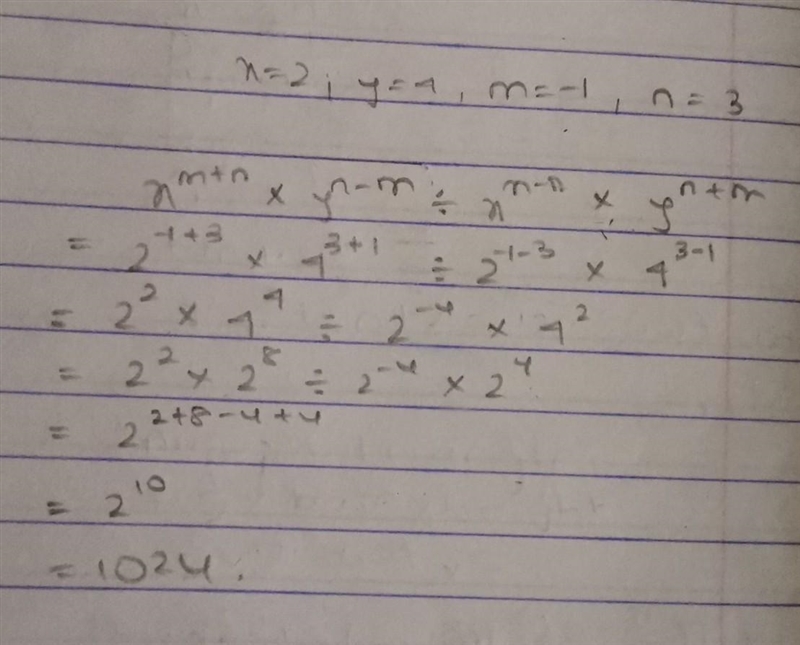 x=2, y=4, m=-1, n=3
x^{m+n} × y^{n-m} ÷ x^{m-n} × y^{n+m}
= 2^{-1+3} × 4^{3+1} ÷ 2^{-1-3} × 4^{3-1}
= 2^2 × 4^4 ÷ 2^{-4} × 4^2
= 2^2 × 2^8 ÷ 2^{-4} × 2^4
= 2^{2+8-4+4}
= 2^{10}
= 1024.